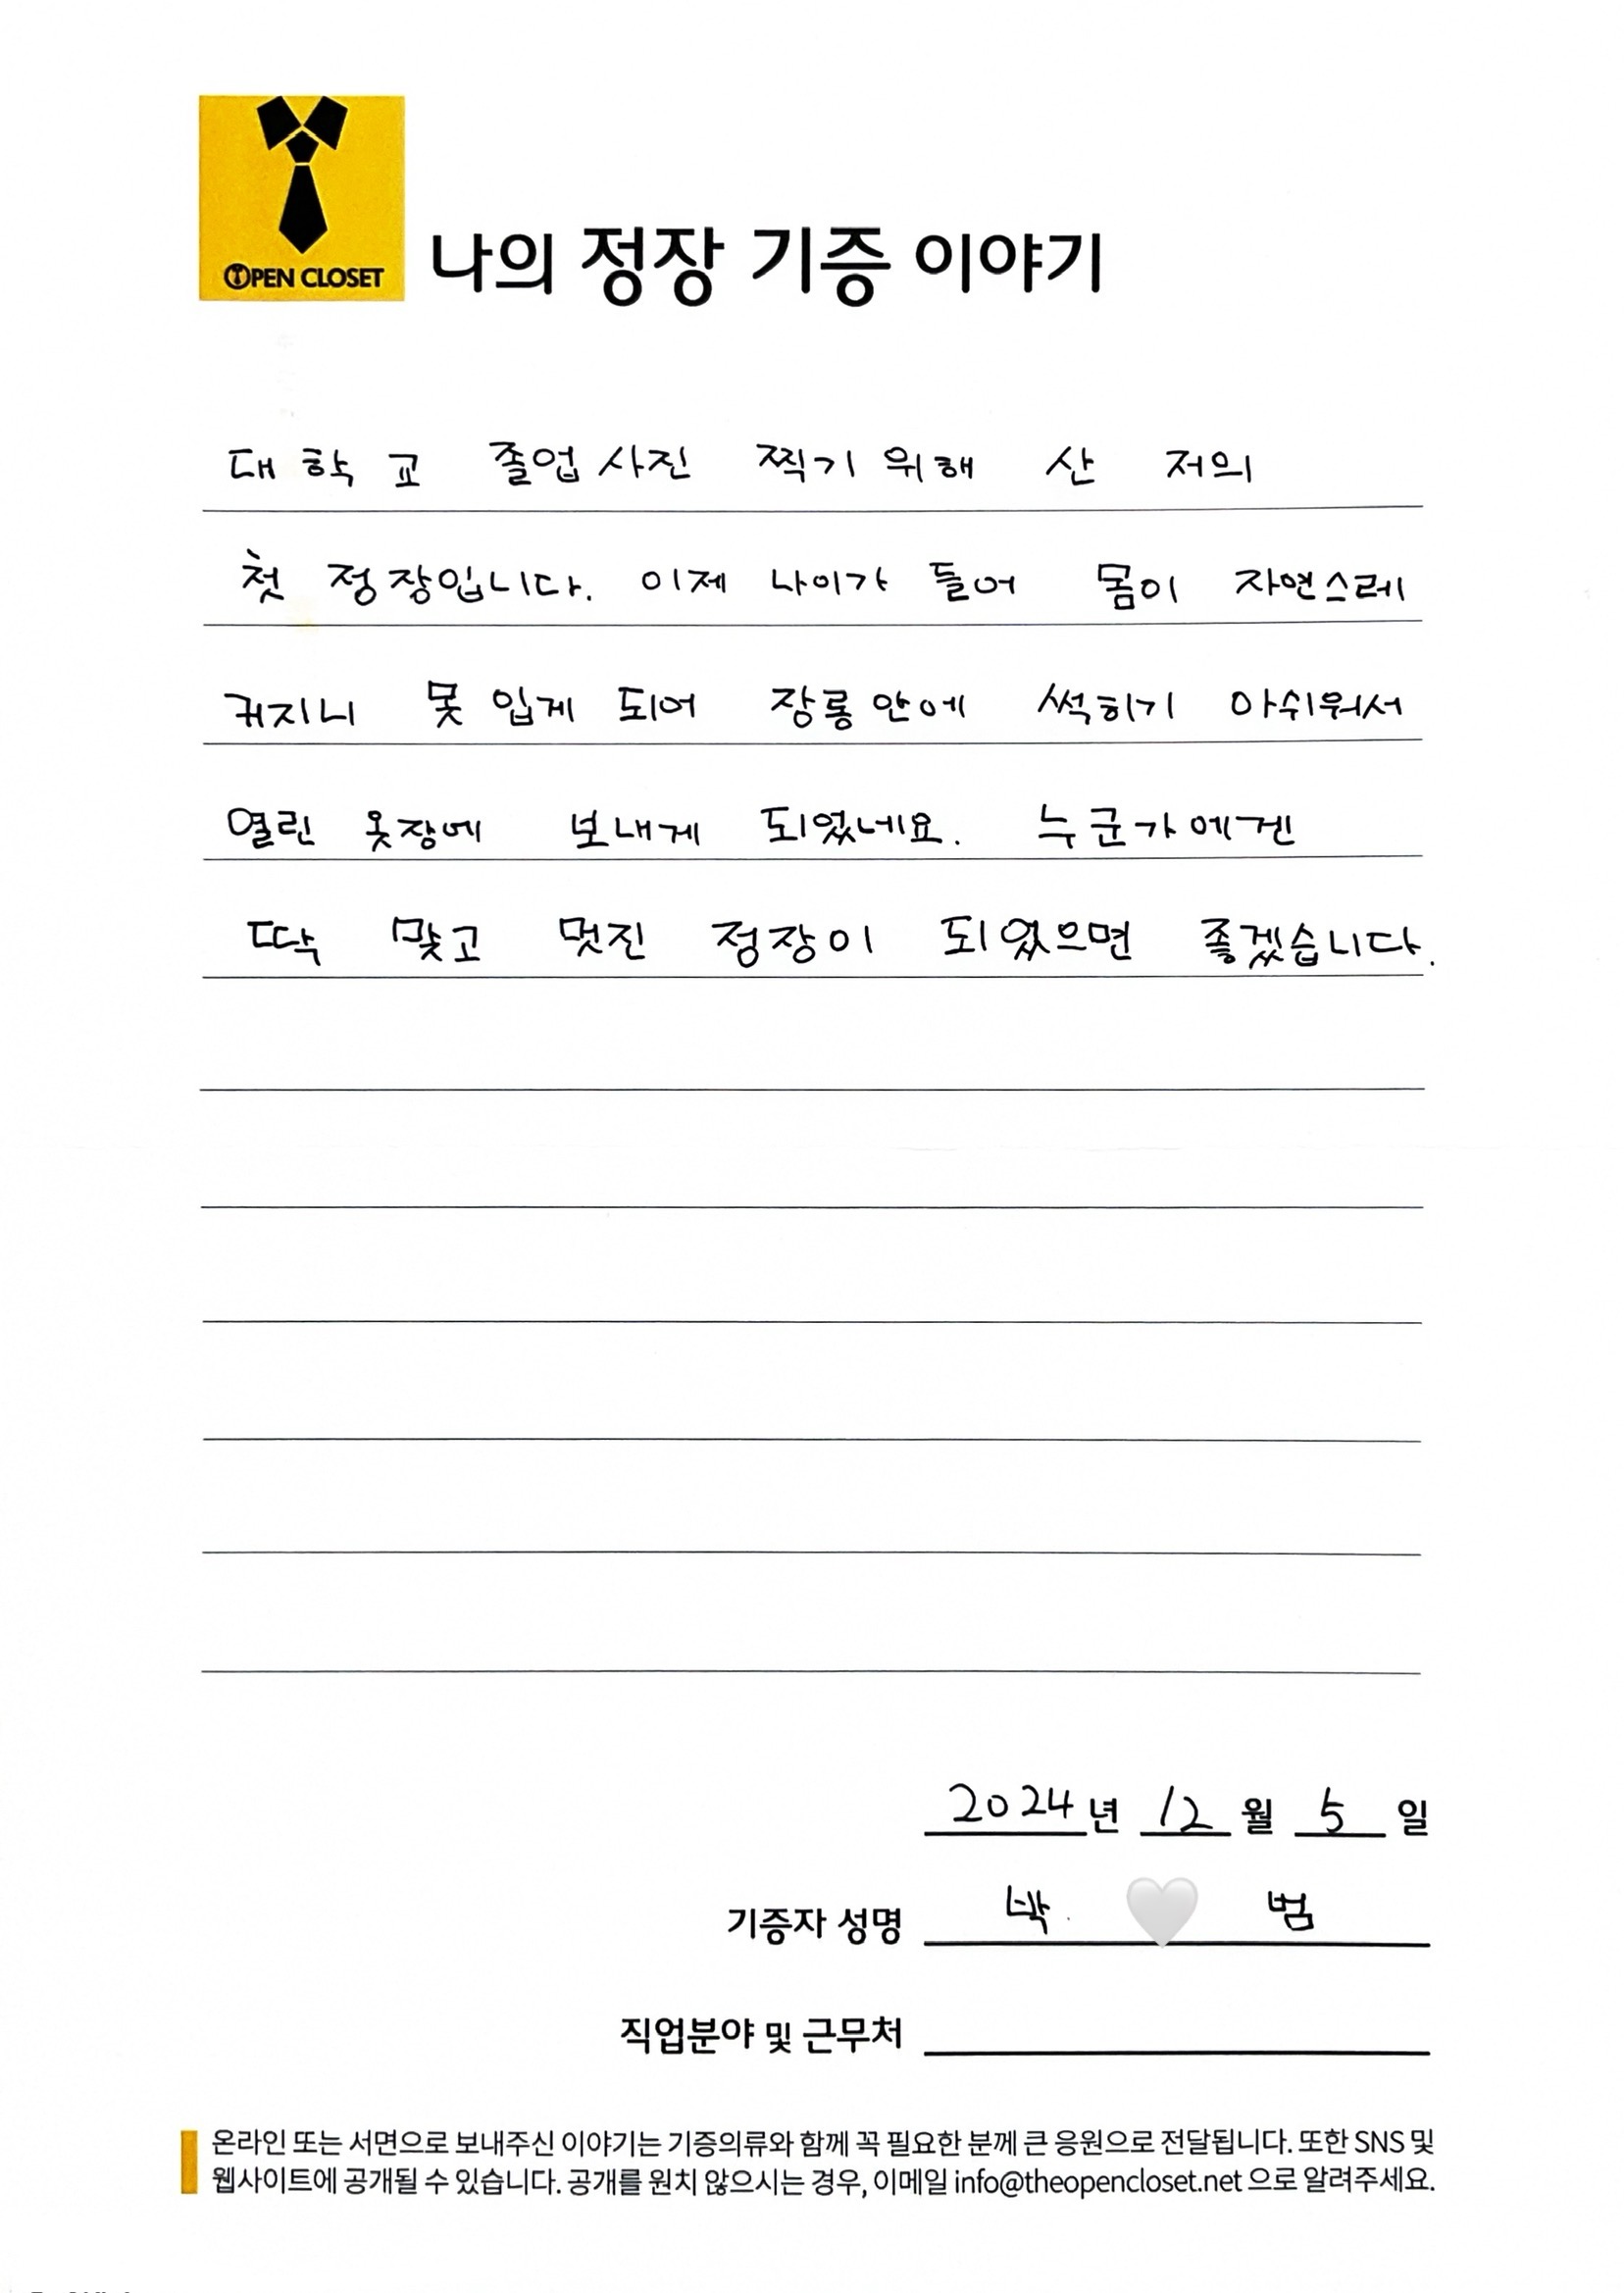 OPEN CLOSET
나의 정장 기증 이야기
대학교 졸업사진 찍기 위해 산 저의
첫 정장입니다. 이제 나이가 들어 몸이 자연스레
커지니 못 입게 되어 장롱안에 썩히기 아쉬워서
열린 옷장에 보내게 되었네요. 누군가에겐
딱 맞고 멋진 정장이 되었으면 좋겠습니다.
2024년 12월 5일
기증자 성명 박 범
직업분야 및 근무처
온라인 또는 서면으로 보내주신 이야기는 기증의류와 함께 꼭 필요한 분께 큰 응원으로 전달됩니다. 또한 SNS 및
웹사이트에 공개될 수 있습니다. 공개를 원치 않으시는 경우, 이메일 info@theopencloset.net 으로 알려주세요.